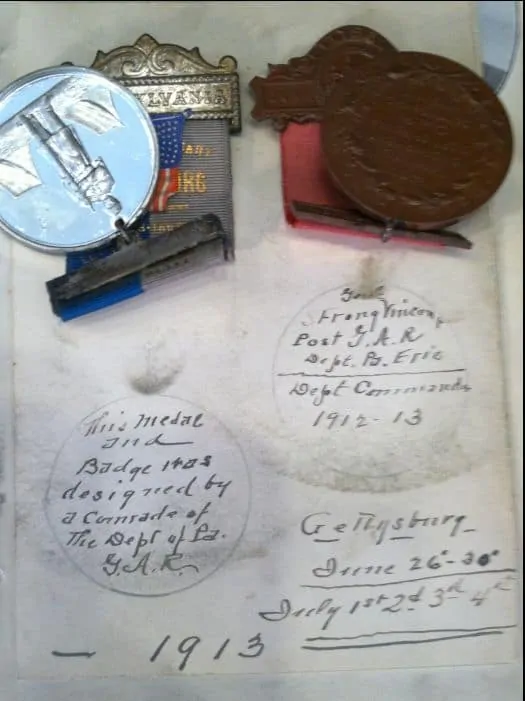 LVANIA
RG
Strong Vincent
Post G.A.R
Dept. Pa. Erie
Dept Commander
1912-13
This Medal
and
Badge was
designed by
a Comrade of
The Dept of Pa.
G.A.R.
Gettysburg
June 26-30
July 1st 2d 3th 4th
— 1913